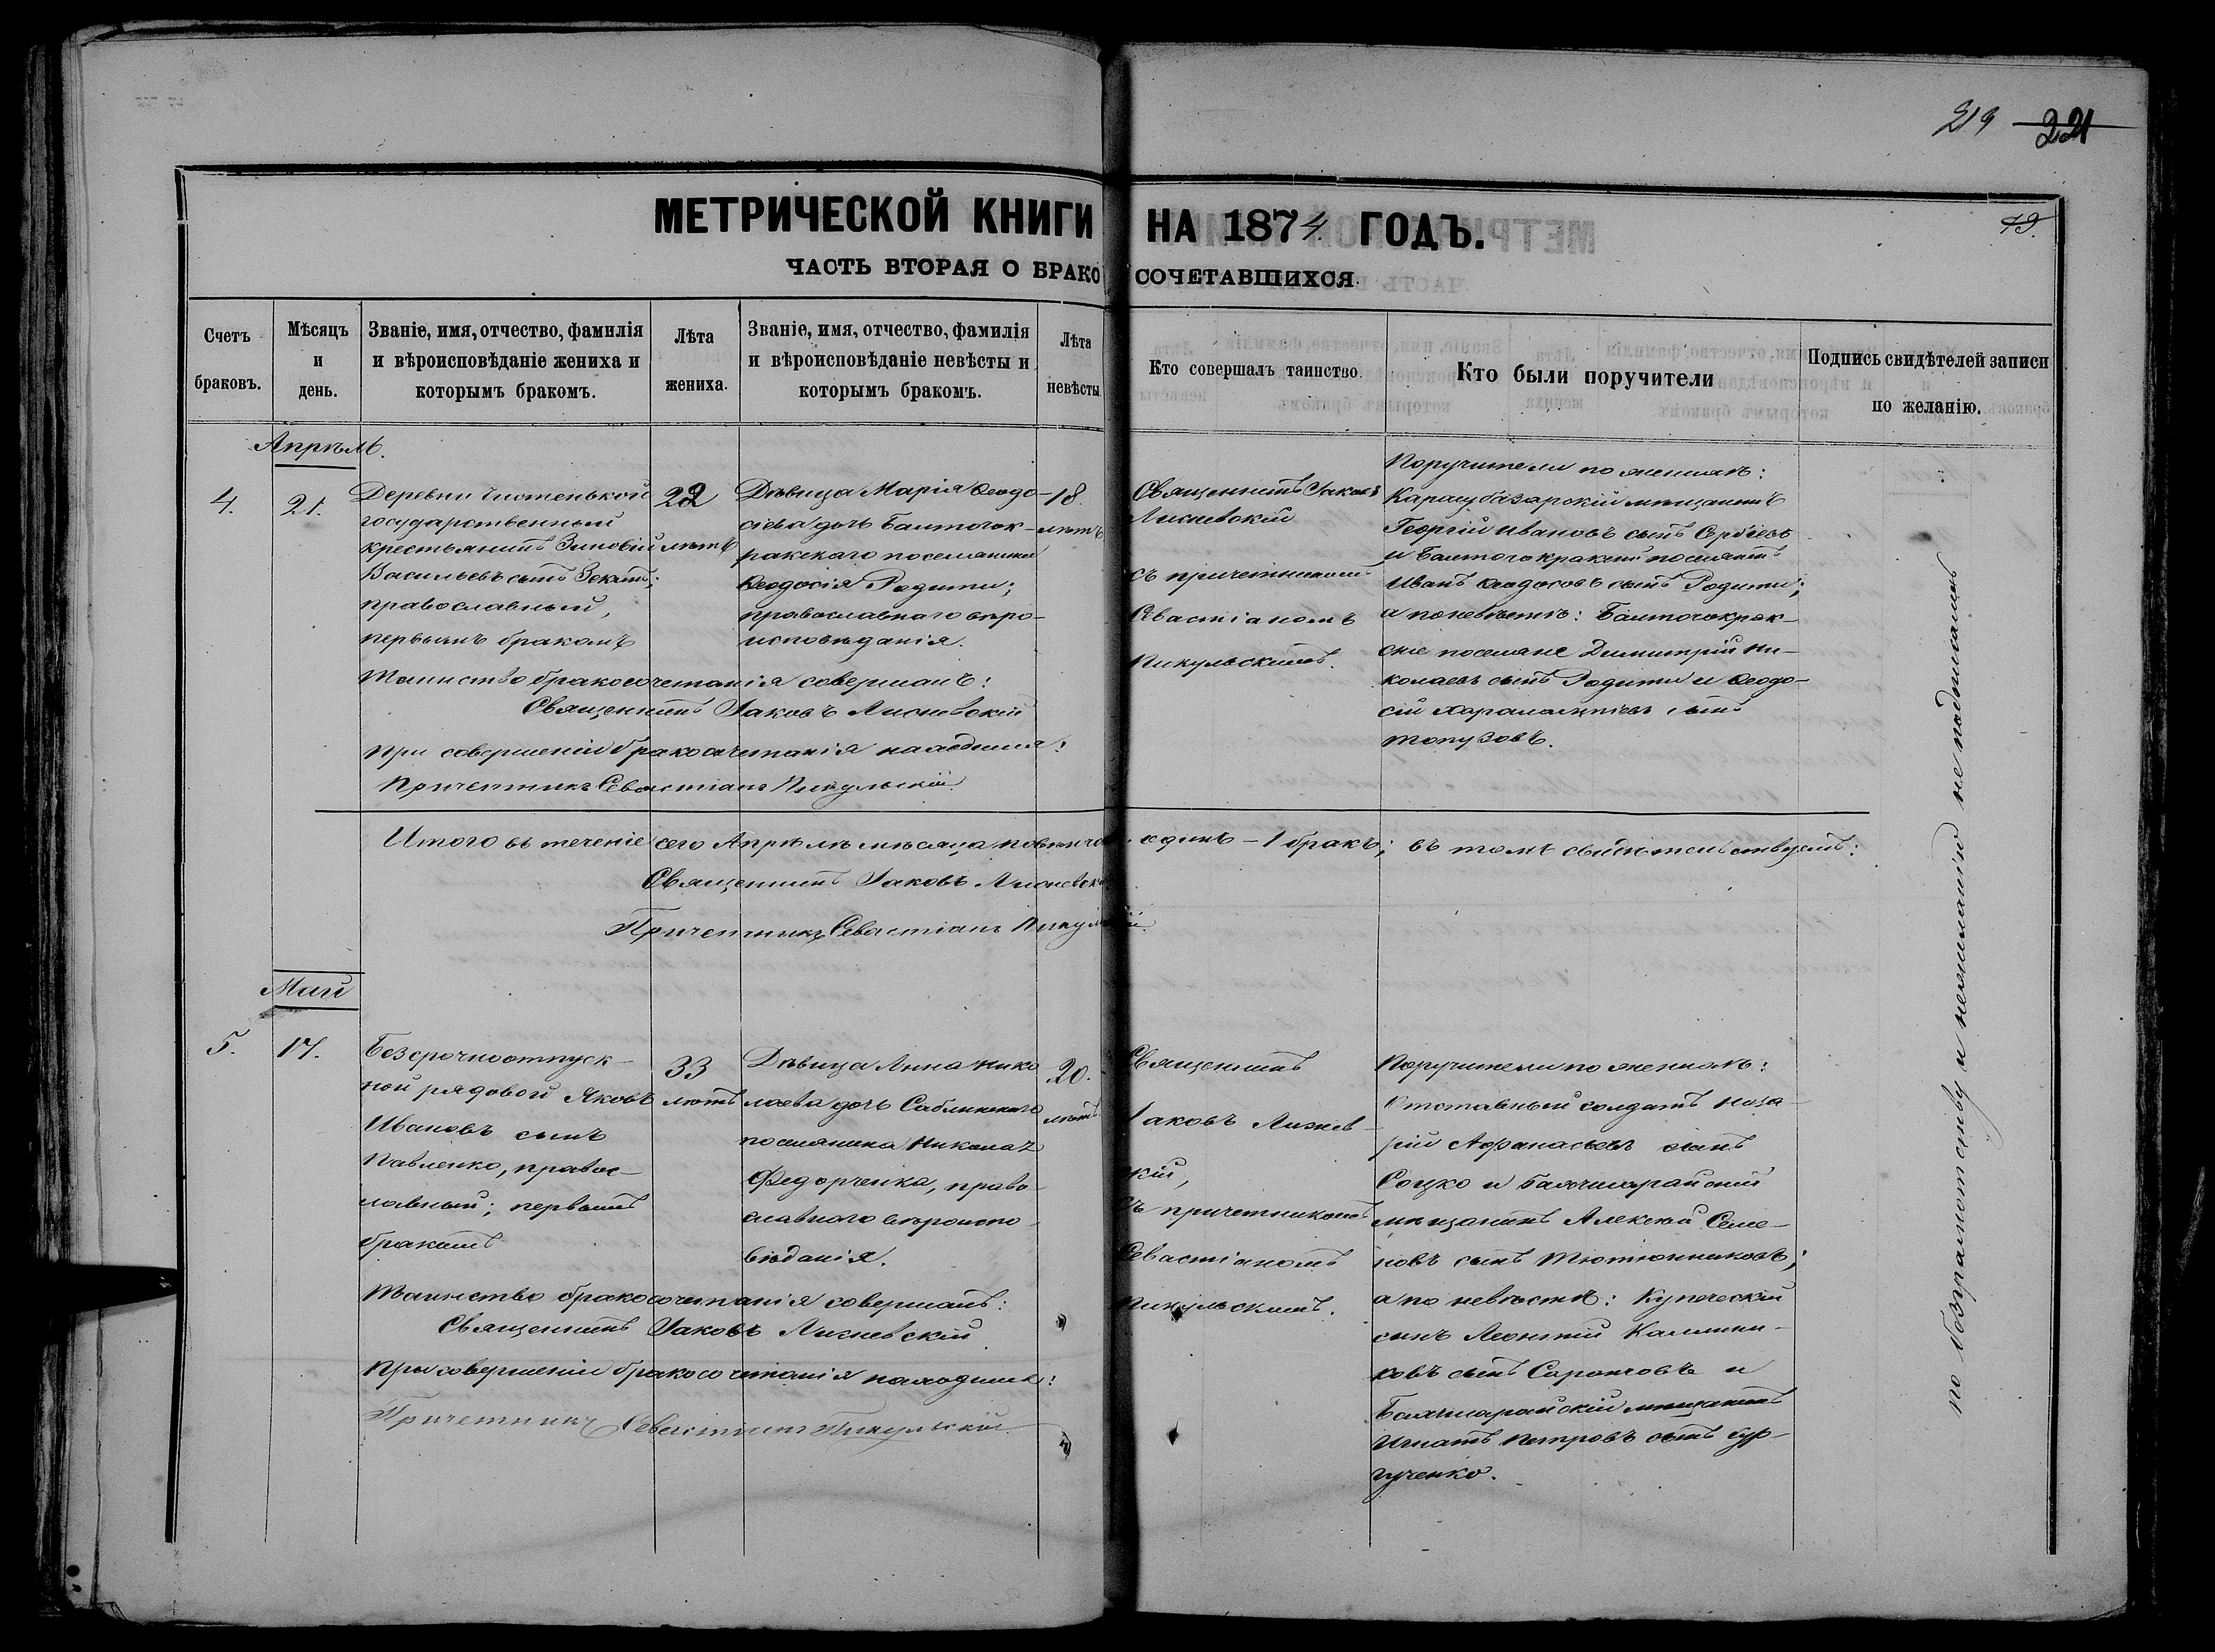 219 221
МЕТРИЧЕСКОЙ КНИГИ НА 1874 ГОДЪ.
49.
ЧАСТЬ ВТОРАЯ О БРАКОСОЧЕТАВШИХСЯ.
Счетъ браковъ.
Мѣсяцъ и день.
Званіе, имя, отчество, фамилія и вѣроисповѣданіе жениха и которымъ бракомъ.
Лѣта жениха.
Званіе, имя, отчество, фамилія и вѣроисповѣданіе невѣсты и которымъ бракомъ.
Лѣта невѣсты.
Кто совершалъ таинство.
Кто были поручители
Подпись свидѣтелей записи по желанію.
Апрѣль.
4.
21.
Деревни Чистенькой
государственный
крестьянинъ Зиновій
Васильевъ сынъ
православный,
первымъ бракомъ
22
лѣтъ
Дѣвица Марія Ѳеодо-
сіева дочь
ракскаго поселянина
Ѳеодосія Родити;
православнаго вѣро-
исповѣданія.
18.
лѣтъ
Священникъ Іаковъ
Лисневскій
съ причетникомъ
Севастіаномъ
Пикульскимъ.
Поручители по женихѣ:
Карасубазарскій мѣщанинъ
Георгій Ивановъ сынъ
и поселянинъ
Иванъ Ѳеодосовъ сынъ Родити;
а по невѣстѣ:
скіе поселяне Димитрій Ни-
колаевъ сынъ Родити и Ѳеодо-
сій Харалампіевъ сынъ
Топузовъ.
Таинство бракосочетанія совершалъ:
Священникъ Іаковъ Лисневскій
При совершеніи бракосочетанія находился:
Причетникъ Севастіанъ Пикульскій
Итого въ теченіе сего Апрѣля мѣсяца одинъ – 1 бракъ; въ томъ свидѣтельствуемъ:
Священникъ Іаковъ
Причетникъ Севастіанъ Пикульскій
Май
5.
17.
Безсрочноотпуск-
ной рядовой Яковъ
Ивановъ сынъ
Павленко, правос-
лавный; первымъ
бракомъ
33
лѣтъ
Дѣвица Анна Нико
лаева дочь Саблинскаго
поселянина Николая
Федорченка, право-
славнаго вѣроиспо-
вѣданія.
20.
лѣтъ
Священникъ
Іаковъ Лиснев-
скій,
съ причетникомъ
Севастіаномъ
Пикульскимъ.
Поручители по женихѣ:
Отставный солдатъ Наза-
рій Афанасьевъ сынъ
Соцко и Бахчисарайскій
мѣщанинъ Алексѣй Семе-
новъ сынъ Тютюнниковъ;
а по невѣстѣ: Купеческій
сынъ Леонтій Калинни-
ковъ сынъ и
Бахчисарайскій мѣщанинъ
Игнатъ Петровъ сынъ
Таинство бракосочетанія совершалъ:
Священникъ Іаковъ Лисневскій
При совершеніи бракосочетанія находился:
Причетникъ Севастіанъ Пикульскій.
по безграмотству и нежеланію не подписались